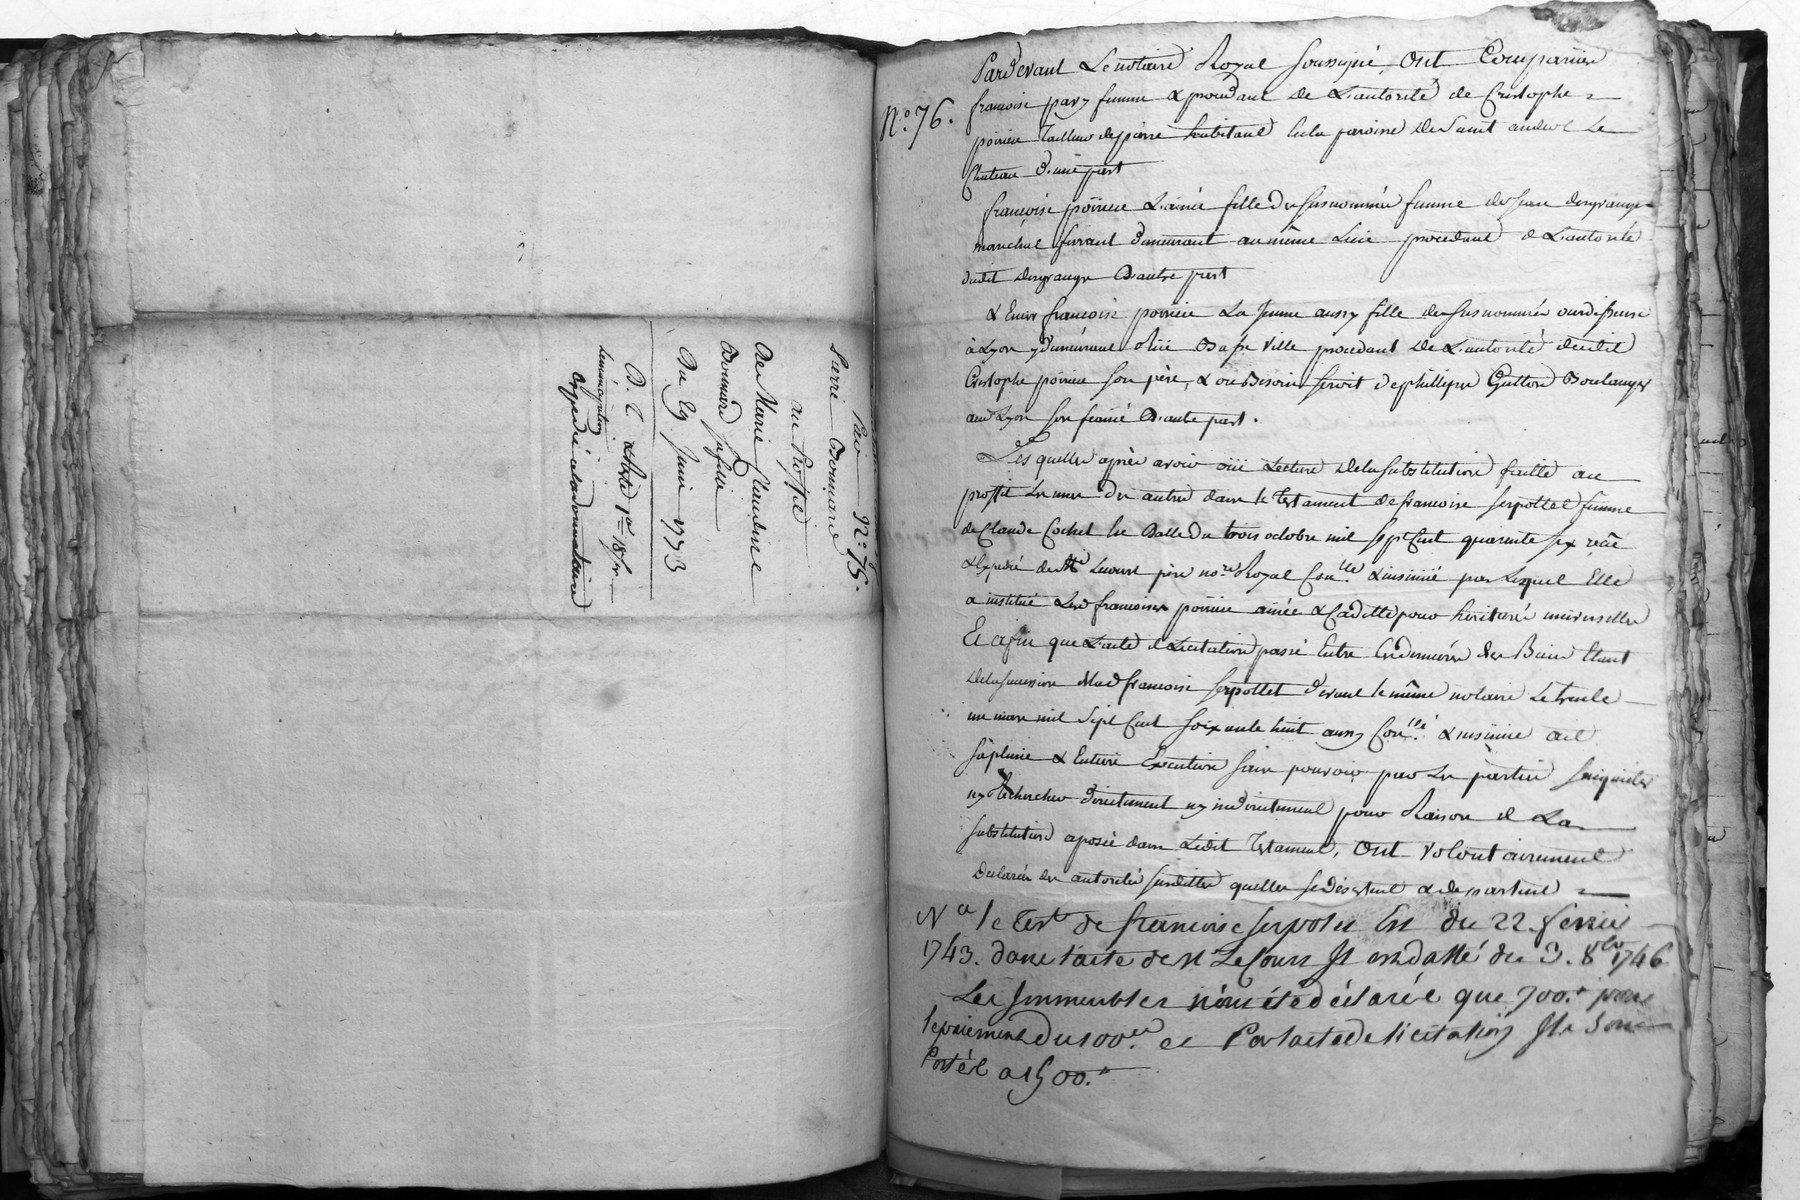 N.º 75.
Pierre Bonnard
au Proffit
De Marie Claudine
Bonnard sa fille
Du 29 Juin 1773
expedié a la donnataire
N.º 76.
Pardevant Le notaire Royal soussigné, Ont Comparües
francoise pary femme & procedant de L'autorité de Cristophe
poirieu Tailleur de pierre habitant en la paroisse de Saint andeol Le
Chateau D'une part
françoise poirieu L'ainée fille des susnommés femme de Jean desgrange
marechal ferrant demeurant au même Lieu procedant de L'autorité
dudit desgrange D'autre part
& Encor francoise poirieu La Jeune aussy fille des susnommés ourdisseuse
à Lyon y demeurant ditte Ville procedant de L'autorité dudit
Cristophe poirieu son père, & ou Besoin seroit de phillipe Guitton Boulanger
aud Lyon son fiancé D'autre part.
Lesquelles après avoir oüi Lecture de la substitution faitte au
proffit Les unes des autres dans le Testament de francoise serpollet femme
de Claude Cochet en Datte du trois octobre mil sept Cent quarante six reçu
& Expedié de Me Lecourt père no.re Royal Con.llé & insinüé par Lequel Elle
a institué Lesd francoises poirieu ainée & Cadette pour heritieres universelles
Et afin que L'acte de Licitation passé Entre Ces dernières des Biens Etant
de la succession de lad francoise serpollet devant le même notaire Le trente
un mars mil Sept Cent soixante huit aussy Con.llé & insinüé ait
sa pleine & Entiere Execution sans pouvoir par Les parties s'inquieter
ny Rechercher directement ny indirectement pour Raison de La
substitution aposée dans Ledit Testament, Ont Volontairement
declarées des autorités susdittes quelles se désistent & departent
N.a le Test. de francoise serpolet Est du 22. fevrier
1743. dans l'acte de M.e LeCourt Il est datté du 3. 8bre 1746
Les Immeubles n'ont été déclarés que 700.# pour
le paiement du 100.e et Par l'acte de licitation Ils sont
Portés a 1500.#